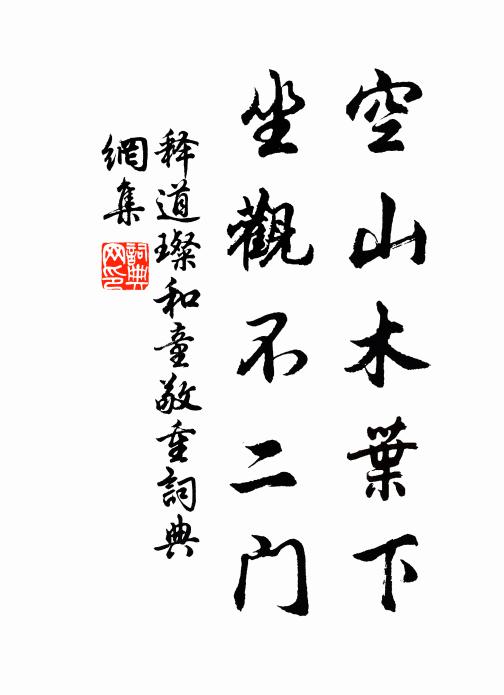 空山木葉下
坐觀不二門
释道璨和童敬重詞典
網集
詞典網印